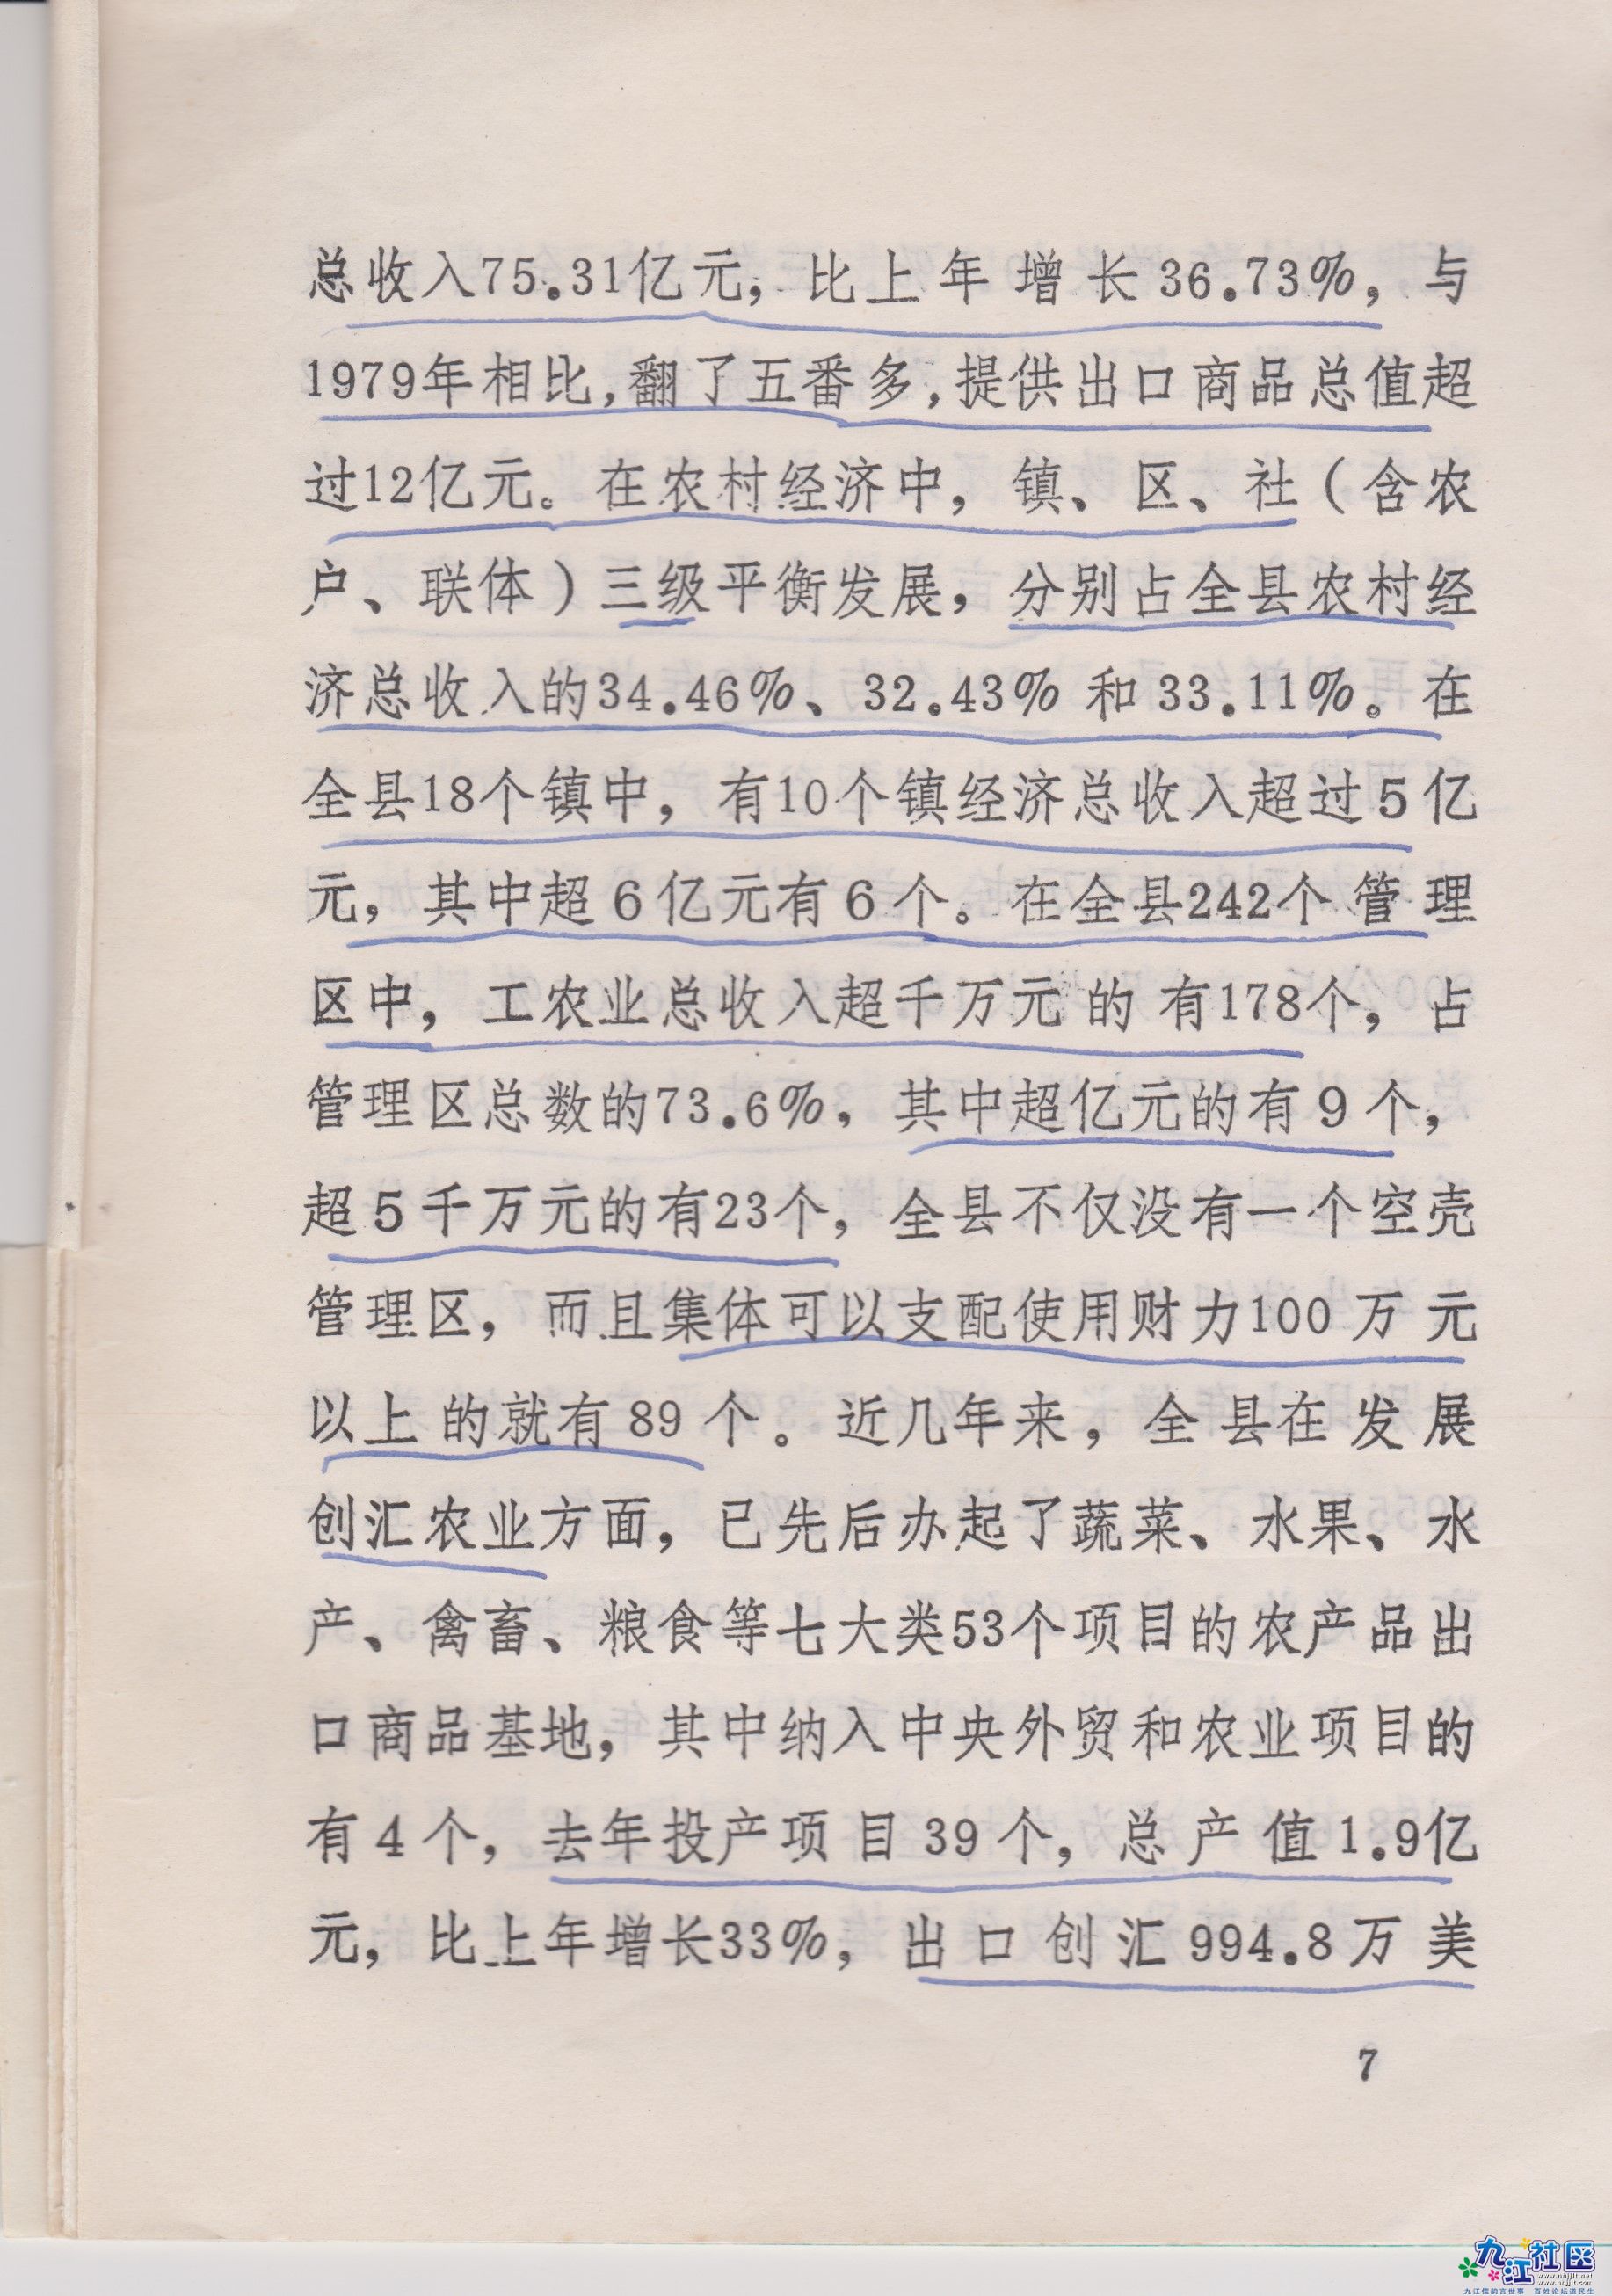 总收入75.31亿元，比上年增长36.73%，与
1979年相比，翻了五番多，提供出口商品总值超
过12亿元。在农村经济中，镇、区、社（含农
户、联体）三级平衡发展，分别占全县农村经
济总收入的34.46%、32.43%和33.11%。在
全县18个镇中，有10个镇经济总收入超过5亿
元，其中超6亿元有6个。在全县242个管理
区中，工农业总收入超千万元的有178个，占
管理区总数的73.6%，其中超亿元的有9个，
超5千万元的有23个，全县不仅没有一个空壳
管理区，而且集体可以支配使用财力100万元
以上的就有89个。近几年来，全县在发展
创汇农业方面，已先后办起了蔬菜、水果、水
产、禽畜、粮食等七大类53个项目的农产品出
口商品基地，其中纳入中央外贸和农业项目的
有4个，去年投产项目39个，总产值1.9亿
元，比上年增长33%，出口创汇994.8万美
7
九江社区